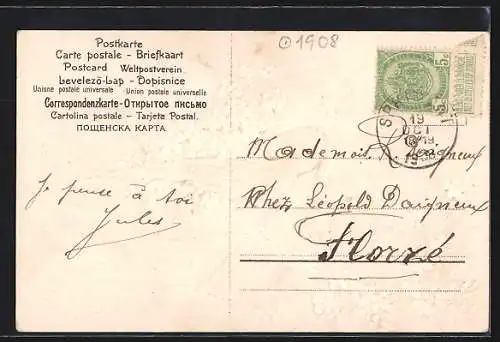 1908
Postkarte
Carte postale - Briefkaart
Postcard Weltpostverein
Levelező-Lap - Dopisnice
Unione postale universale Union postale universelle
Correspondenzkarte - Открытое письмо
Cartolina postale - Tarjeta Postal.
ПОЩЕНСКА КАРТА
5
19
OCT
1908
Mademois. Daigneux
Chez Léopold Daigneux
Florzé
Je pense à toi
Jules